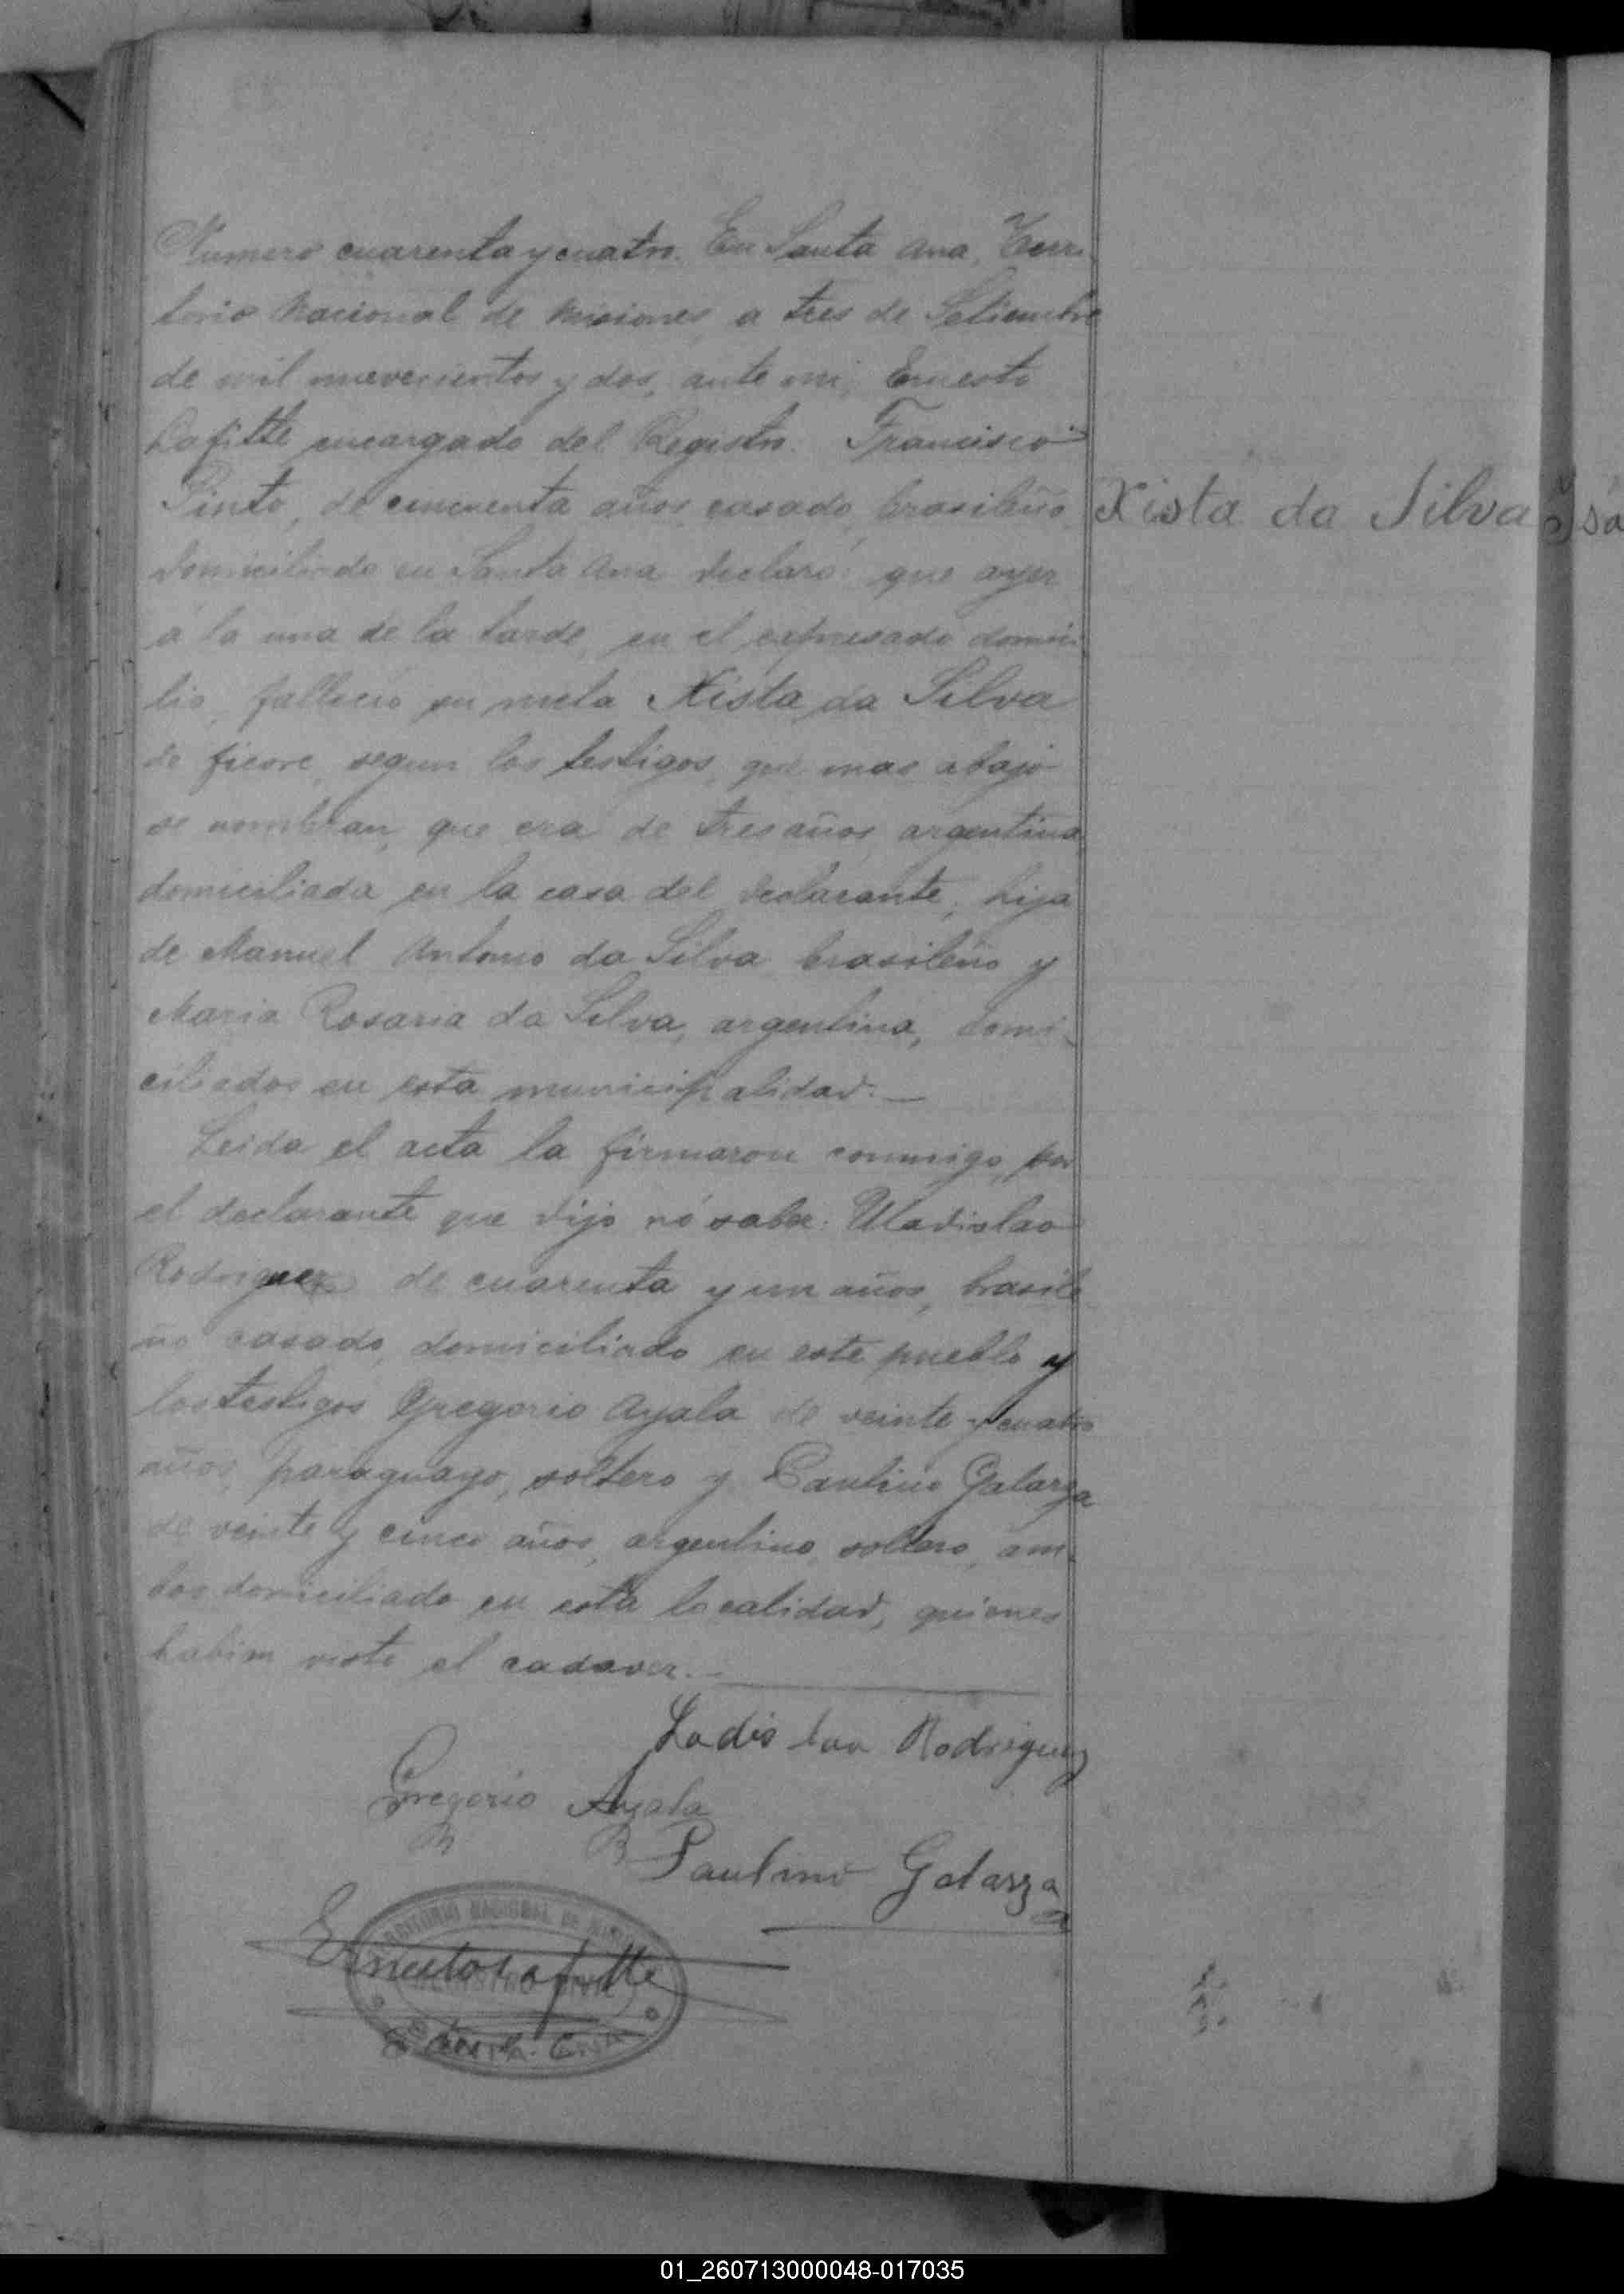 Numero cuarenta y cuatro. En Santa Ana, Terri-
torio Nacional de Misiones, a tres de Setiembre
de mil novecientos y dos, ante mi, Ernesto
Lafitte encargado del Registro. Francisco
Pinto, de cincuenta años, casado, brasileño,
domiciliado en Santa Ana declaró: que ayer
á la una de la tarde, en el expresado domici-
lio, falleció su nieta Xista da Silva
de fiebre, segun los testigos, que mas abajo
se nombran, que era de tres años, argentina,
domiciliada en la casa del declarante, hija
de Manuel Antonio da Silva brasileño y
Maria Rosaria da Silva, argentina, domi-
ciliados en esta municipalidad.—
Leida el acta la firmaron conmigo, por
el declarante que dijo nó saber: Uladislao
Rodriguez de cuarenta y un años, brasile
ño casado, domiciliado en este pueblo y
los testigos Gregorio Ayala de veinte y cuatro
años, paraguayo, soltero y Paulino Galarza
de veinte y cinco años, argentino, soltero, am-
bos domiciliado en esta localidad, quienes
habian visto el cadaver.—
Xista da Silva
Ladislao Rodriguez
Gregorio Ayala
Paulino Galarza
TERRITORIO NACIONAL DE MISIONES
Ernesto Lafitte
REGISTRO CIVIL
01_260713000048-017035